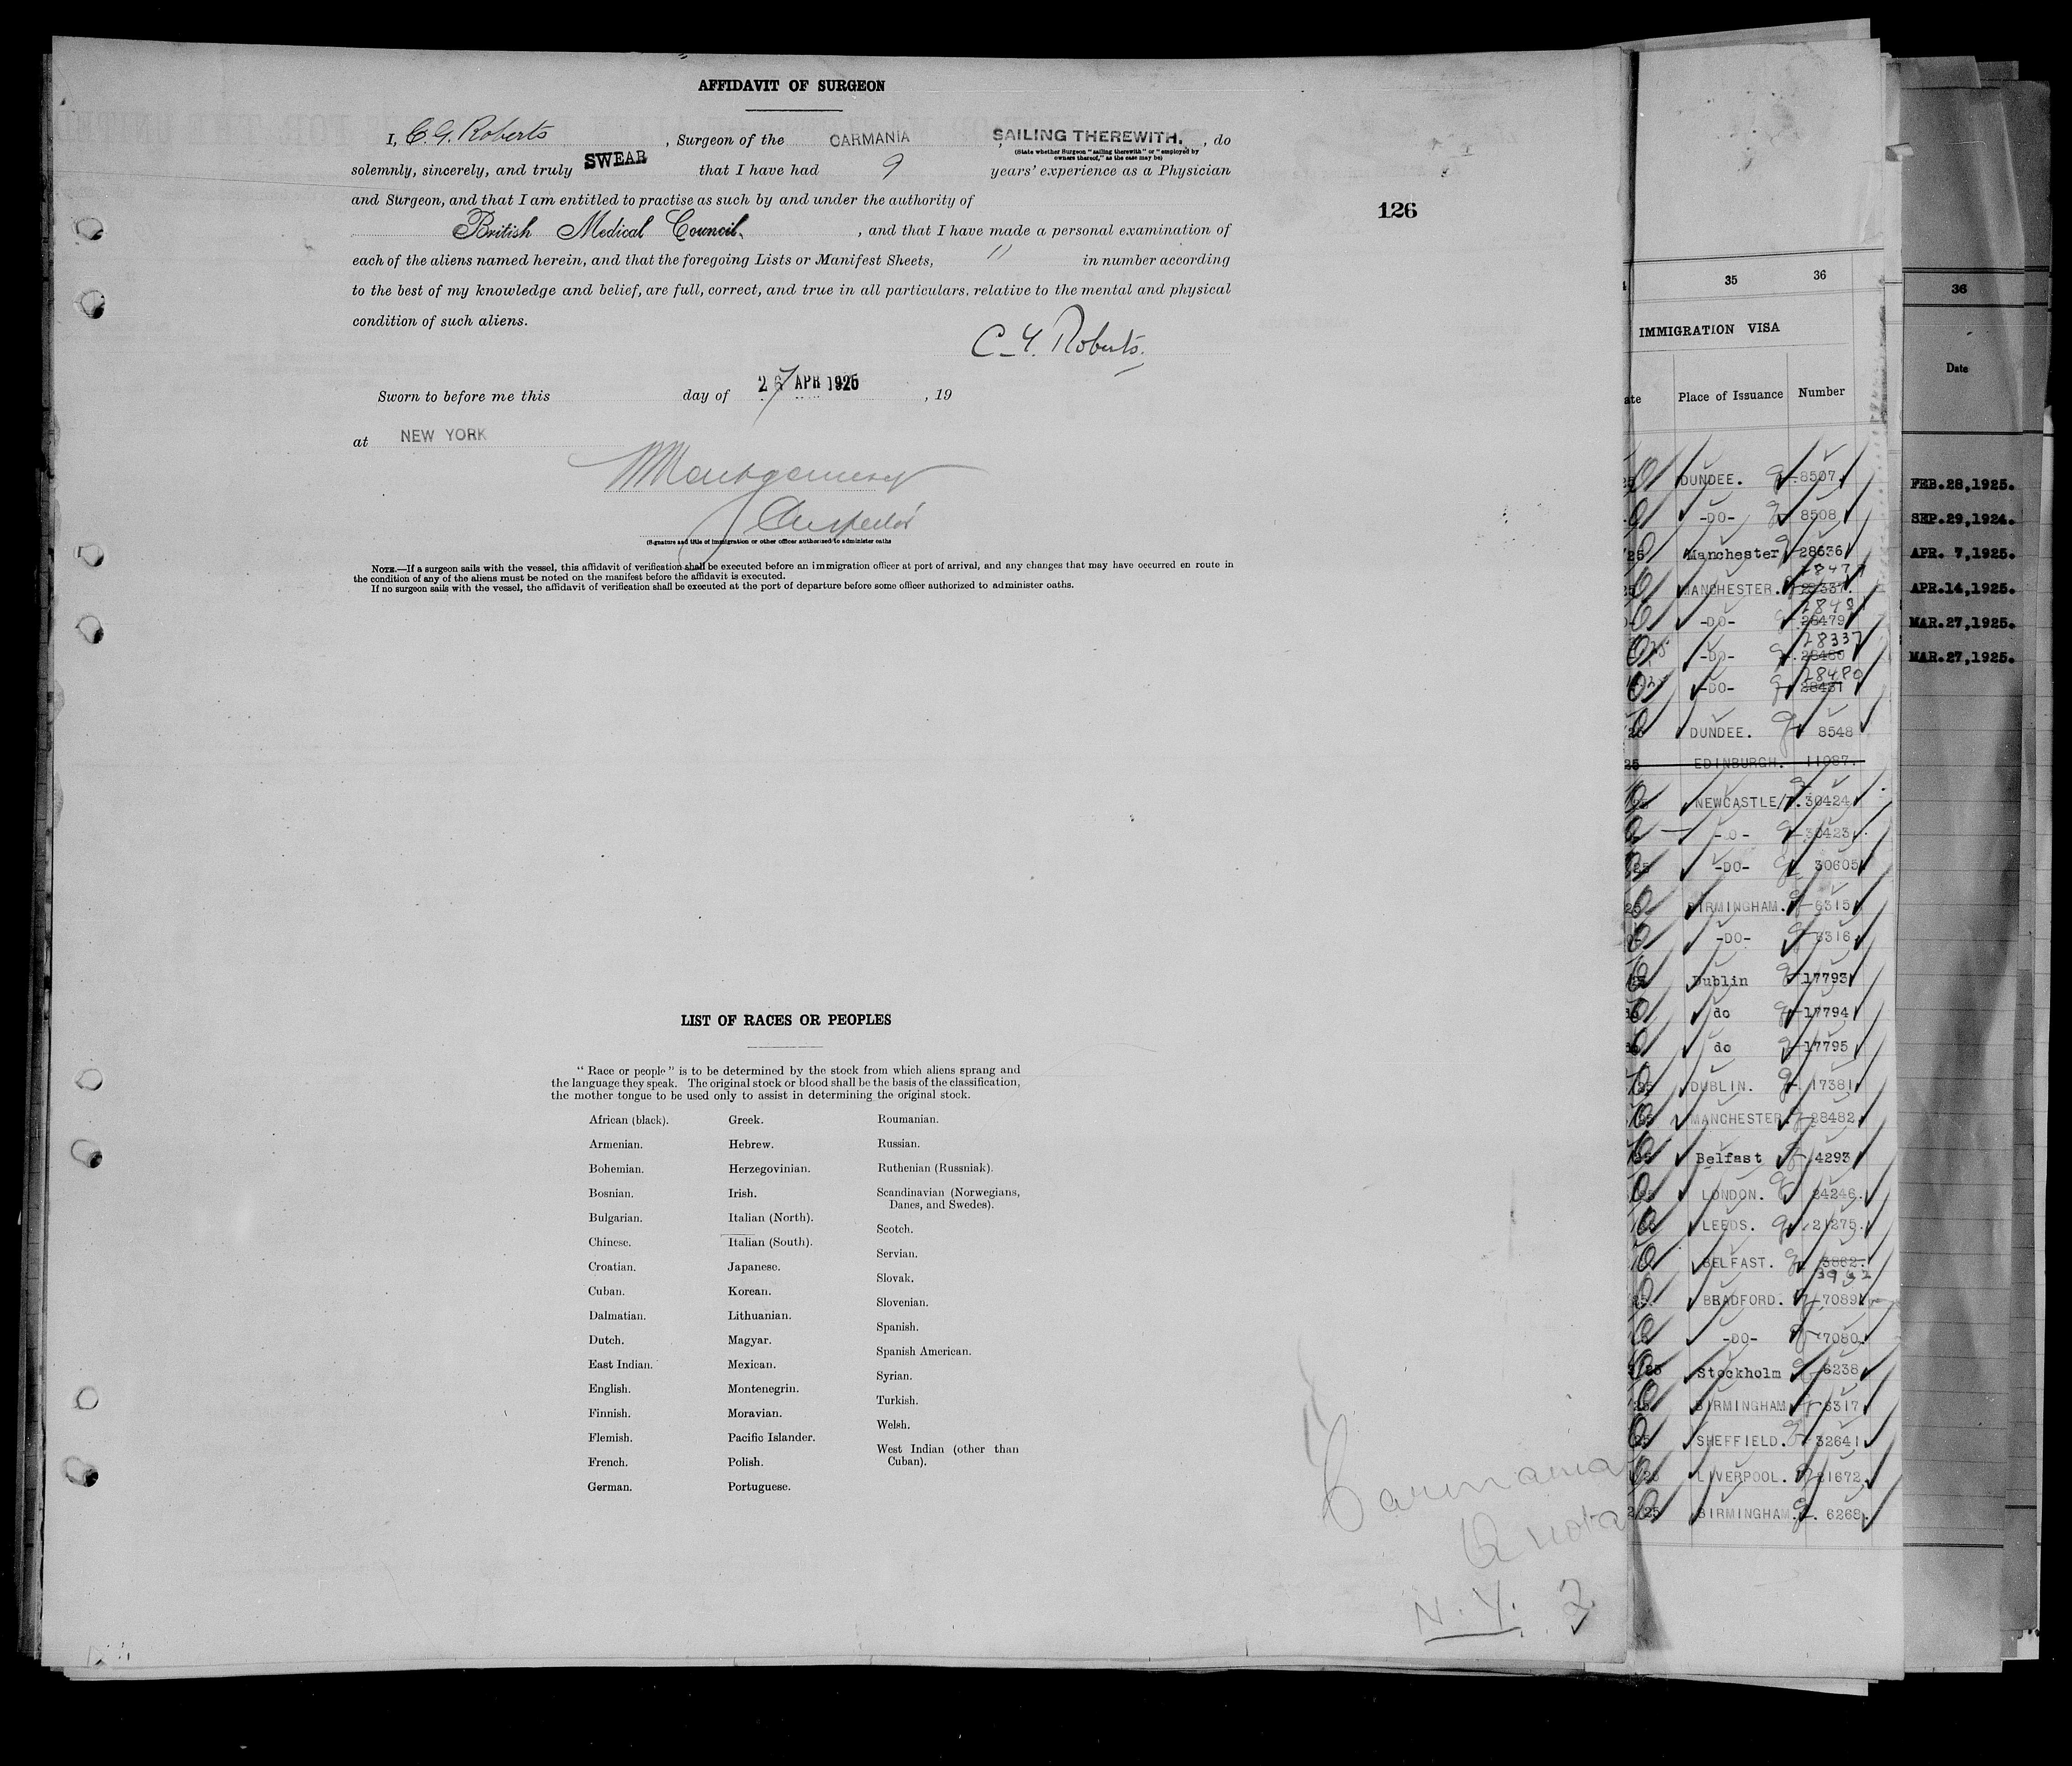 AFFIDAVIT OF SURGEON
I, C. G. Roberts , Surgeon of the CARMANIA SAILING THEREWITH. , do
(State whether Surgeon "sailing therewith" or "employed by
owners thereof," as the case may be)
solemnly, sincerely, and truly SWEAR that I have had 9 years' experience as a Physician
and Surgeon, and that I am entitled to practise as such by and under the authority of
British Medical Council. , and that I have made a personal examination of
each of the aliens named herein, and that the foregoing Lists or Manifest Sheets, 11 in number according
to the best of my knowledge and belief, are full, correct, and true in all particulars, relative to the mental and physical
condition of such aliens.
C. G. Roberts.
Sworn to before me this day of 27 APR 1925 , 19
at NEW YORK
Montgomery
Inspector
(Signature and title of immigration or other officer authorised to administer oaths
NOTE.—If a surgeon sails with the vessel, this affidavit of verification shall be executed before an immigration officer at port of arrival, and any changes that may have occurred en route in
the condition of any of the aliens must be noted on the manifest before the affidavit is executed.
If no surgeon sails with the vessel, the affidavit of verification shall be executed at the port of departure before some officer authorized to administer oaths.
126
LIST OF RACES OR PEOPLES
"Race or people" is to be determined by the stock from which aliens sprang and
the language they speak. The original stock or blood shall be the basis of the classification,
the mother tongue to be used only to assist in determining the original stock.
African (black).
Armenian.
Bohemian.
Bosnian.
Bulgarian.
Chinese.
Croatian.
Cuban.
Dalmatian.
Dutch.
East Indian.
English.
Finnish.
Flemish.
French.
German.
Greek.
Hebrew.
Herzegovinian.
Irish.
Italian (North).
Italian (South).
Japanese.
Korean.
Lithuanian.
Magyar.
Mexican.
Montenegrin.
Moravian.
Pacific Islander.
Polish.
Portuguese.
Roumanian.
Russian.
Ruthenian (Russniak).
Scandinavian (Norwegians,
Danes, and Swedes).
Scotch.
Servian.
Slovak.
Slovenian.
Spanish.
Spanish American.
Syrian.
Turkish.
Welsh.
West Indian (other than
Cuban).
Carmania
Quota
N.Y. 2
35 36
IMMIGRATION VISA
Place of Issuance Number
DUNDEE. 8507.
-DO- 8508
Manchester 28636
MANCHESTER. 28337.
-DO- 28479
28337
-DO- 28480
28480
-DO- 28481
DUNDEE. 8548
EDINBURGH. 11087.
NEWCASTLE/T. 30424
-DO- 30423
-DO- 30605
BIRMINGHAM. 6315
-DO- 6316
Dublin 17793
do 17794
do 17795
DUBLIN. 17381
MANCHESTER. 28482
Belfast 4293
LONDON. 24246.
LEEDS. 21275.
BELFAST. 3862.
BRADFORD. 7089
-DO- 7080
Stockholm 6238
BIRMINGHAM 6317
SHEFFIELD. 32641
LIVERPOOL. 21672
BIRMINGHAM. 6268.
36
Date
FEB.28,1925.
SEP.29,1924.
APR. 7,1925.
APR.14,1925.
MAR.27,1925.
MAR.27,1925.